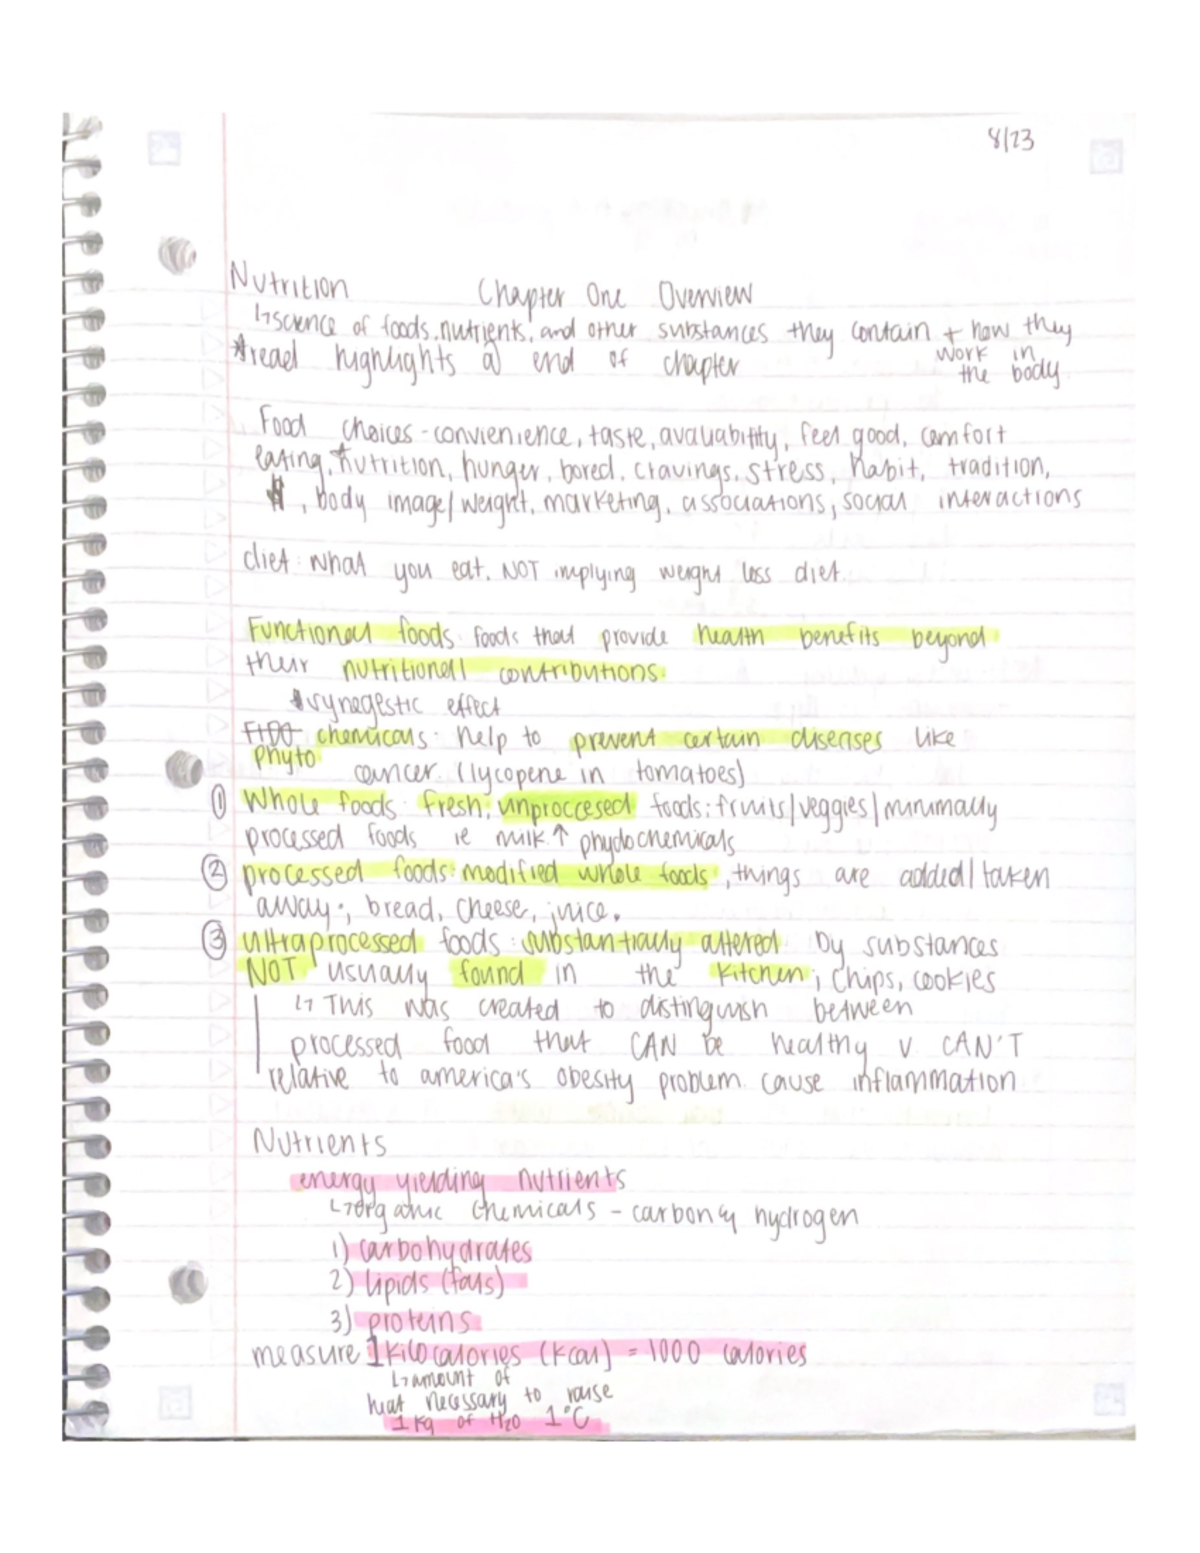 8/23
Nutrition Chapter One Overview
↳science of foods, nutrients, and other substances they contain + how they work in the body
*read highlights @ end of chapter
Food choices - convienience, taste, avaliability, feel good, comfort
eating, *nutrition, hunger, bored, cravings, stress, habit, tradition,
$, body image/weight, marketing, associations, social interactions
diet: what you eat. NOT implying weight loss diet.
Functional foods: foods that provide health benefits beyond
their nutritionall contributions.
*synegestic effect
phyto chemicals: help to prevent certain diseases like
cancer. (lycopene in tomatoes)
① Whole foods: fresh, unproccesed foods: fruits/veggies/minimally
processed foods ie milk ↑ phytochemicals
② processed foods: modified whole foods, things are added/taken
away; bread, cheese, juice.
③ ultraprocessed foods: substantially altered by substances
NOT usually found in the kitchen; chips, cookies
↳ This was created to distinguish between
processed food that CAN be healthy v CAN'T
relative to america's obesity problem. cause inflammation
Nutrients
energy yielding nutrients
↳organic chemicals - carbon & hydrogen
1) carbohydrates
2) lipids (fats)
3) proteins
measure 1 kilocalories (kcal) = 1000 calories
↳amount of
heat necessary to raise
1 kg of H2O 1°C